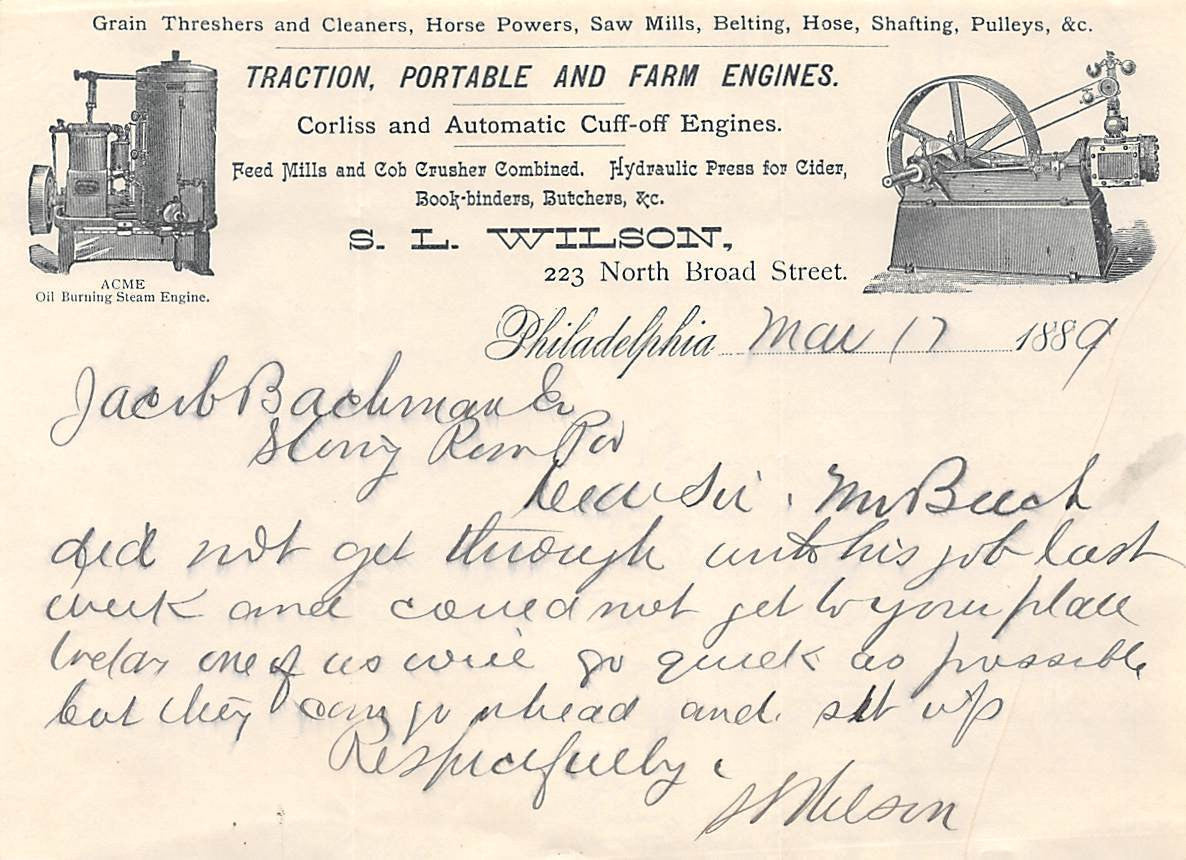 Grain Threshers and Cleaners, Horse Powers, Saw Mills, Belting, Hose, Shafting, Pulleys, &c.
TRACTION, PORTABLE AND FARM ENGINES.
Corliss and Automatic Cuff-off Engines.
Feed Mills and Cob Crusher Combined. Hydraulic Press for Cider,
Book-binders, Butchers, &c.
S. L. WILSON,
223 North Broad Street.
ACME
Oil Burning Steam Engine.
Philadelphia Mar 17 1889
Jacob Bachman
Run Pa
Dear Sir. Mr Beech
did not get through with his job last
week and could not get to your place
today one of us will go quick as possible
but they can go ahead and set up
Respectfully
S L Wilson